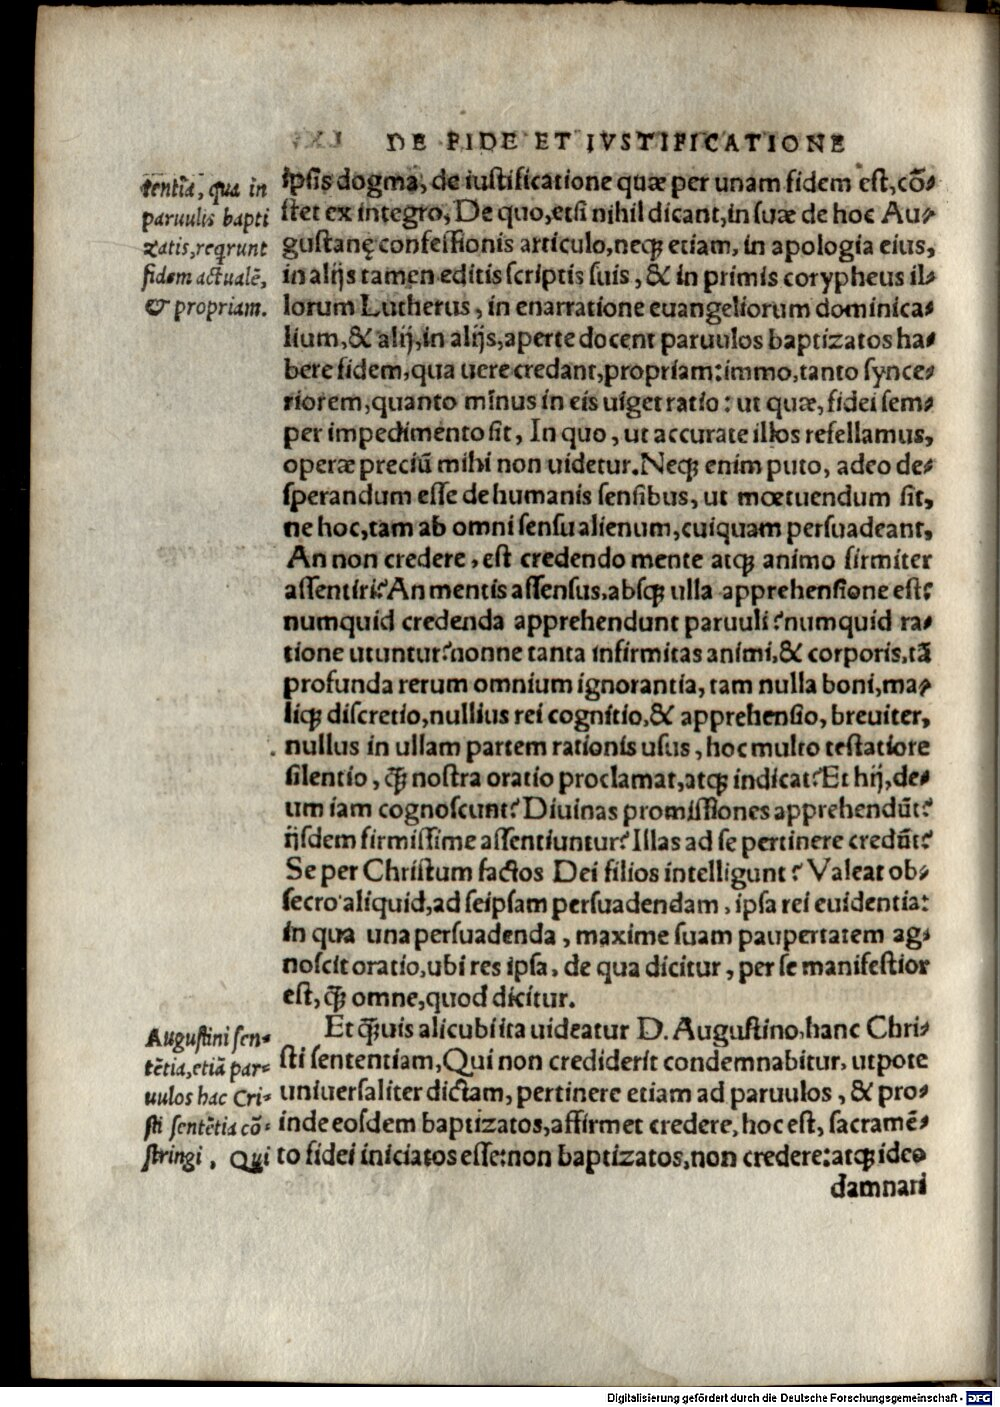 DE FIDE ET IVSTIFICATIONE
tentia, qua in
paruulis bapti
zatis, reqrunt
fidem actualē,
& propriam.
ipsis dogma, de iustificatione quæ per unam fidem est, cō⸗
stet ex integro, De quo, etsi nihil dicant, in suæ de hoc Au⸗
gustanę confessionis articulo, neqꝫ etiam, in apologia eius,
in alijs tamen editis scriptis suis, & in primis corypheus il⸗
lorum Lutherus, in enarratione euangeliorum dominica⸗
lium, & alij, in alijs, aperte docent paruulos baptizatos ha⸗
bere fidem, qua uere credant, propriam: immo, tanto synce⸗
riorem, quanto minus in eis uiget ratio: ut quæ, fidei sem⸗
per impedimento sit, In quo, ut accurate illos refellamus,
operæ preciū mihi non uidetur. Neqꝫ enim puto, adeo de⸗
sperandum esse de humanis sensibus, ut mœtuendum sit,
ne hoc, tam ab omni sensu alienum, cuiquam persuadeant,
An non credere, est credendo mente atqꝫ animo firmiter
assentiri? An mentis assensus, absqꝫ ulla apprehensione est?
numquid credenda apprehendunt paruuli? numquid ra⸗
tione utuntur? nonne tanta infirmitas animi, & corporis, tā
profunda rerum omnium ignorantia, tam nulla boni, ma⸗
liqꝫ discretio, nullius rei cognitio, & apprehensio, breuiter,
nullus in ullam partem rationis usus, hoc multo testatiore
silentio, q̃ꝫ nostra oratio proclamat, atqꝫ indicat? Et hij, de⸗
um iam cognoscunt? Diuinas promissiones apprehendūt?
ijsdem firmissime assentiuntur? Illas ad se pertinere credūt?
Se per Christum factos Dei filios intelligunt? Valeat ob⸗
secro aliquid, ad seipsam persuadendam, ipsa rei euidentia:
in qua una persuadenda, maxime suam paupertatem ag⸗
noscit oratio, ubi res ipsa, de qua dicitur, per se manifestior
est, q̃ꝫ omne, quod dicitur.
Augustini sen⸗
tētia, etiā par⸗
uulos hac Cri⸗
sti sentētia cō⸗
stringi, Qui
Et q̃ꝫuis alicubi ita uideatur D. Augustino, hanc Chri⸗
sti sententiam, Qui non crediderit condemnabitur, utpote
uniuersaliter dictam, pertinere etiam ad paruulos, & pro⸗
inde eosdem baptizatos, affirmet credere, hoc est, sacramē⸗
to fidei iniciatos esse: non baptizatos, non credere: atqꝫ ideo
damnari
Digitalisierung gefördert durch die Deutsche Forschungsgemeinschaft - DFG